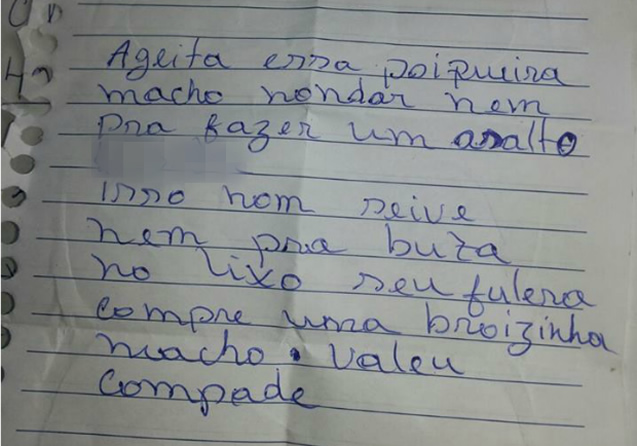 Ageita essa poipueira
macho nondar nem
pra fazer um asalto
isso nom seive
nem pra buza
no lixo seu fulera
compre uma broizinha
macho. valeu
compade